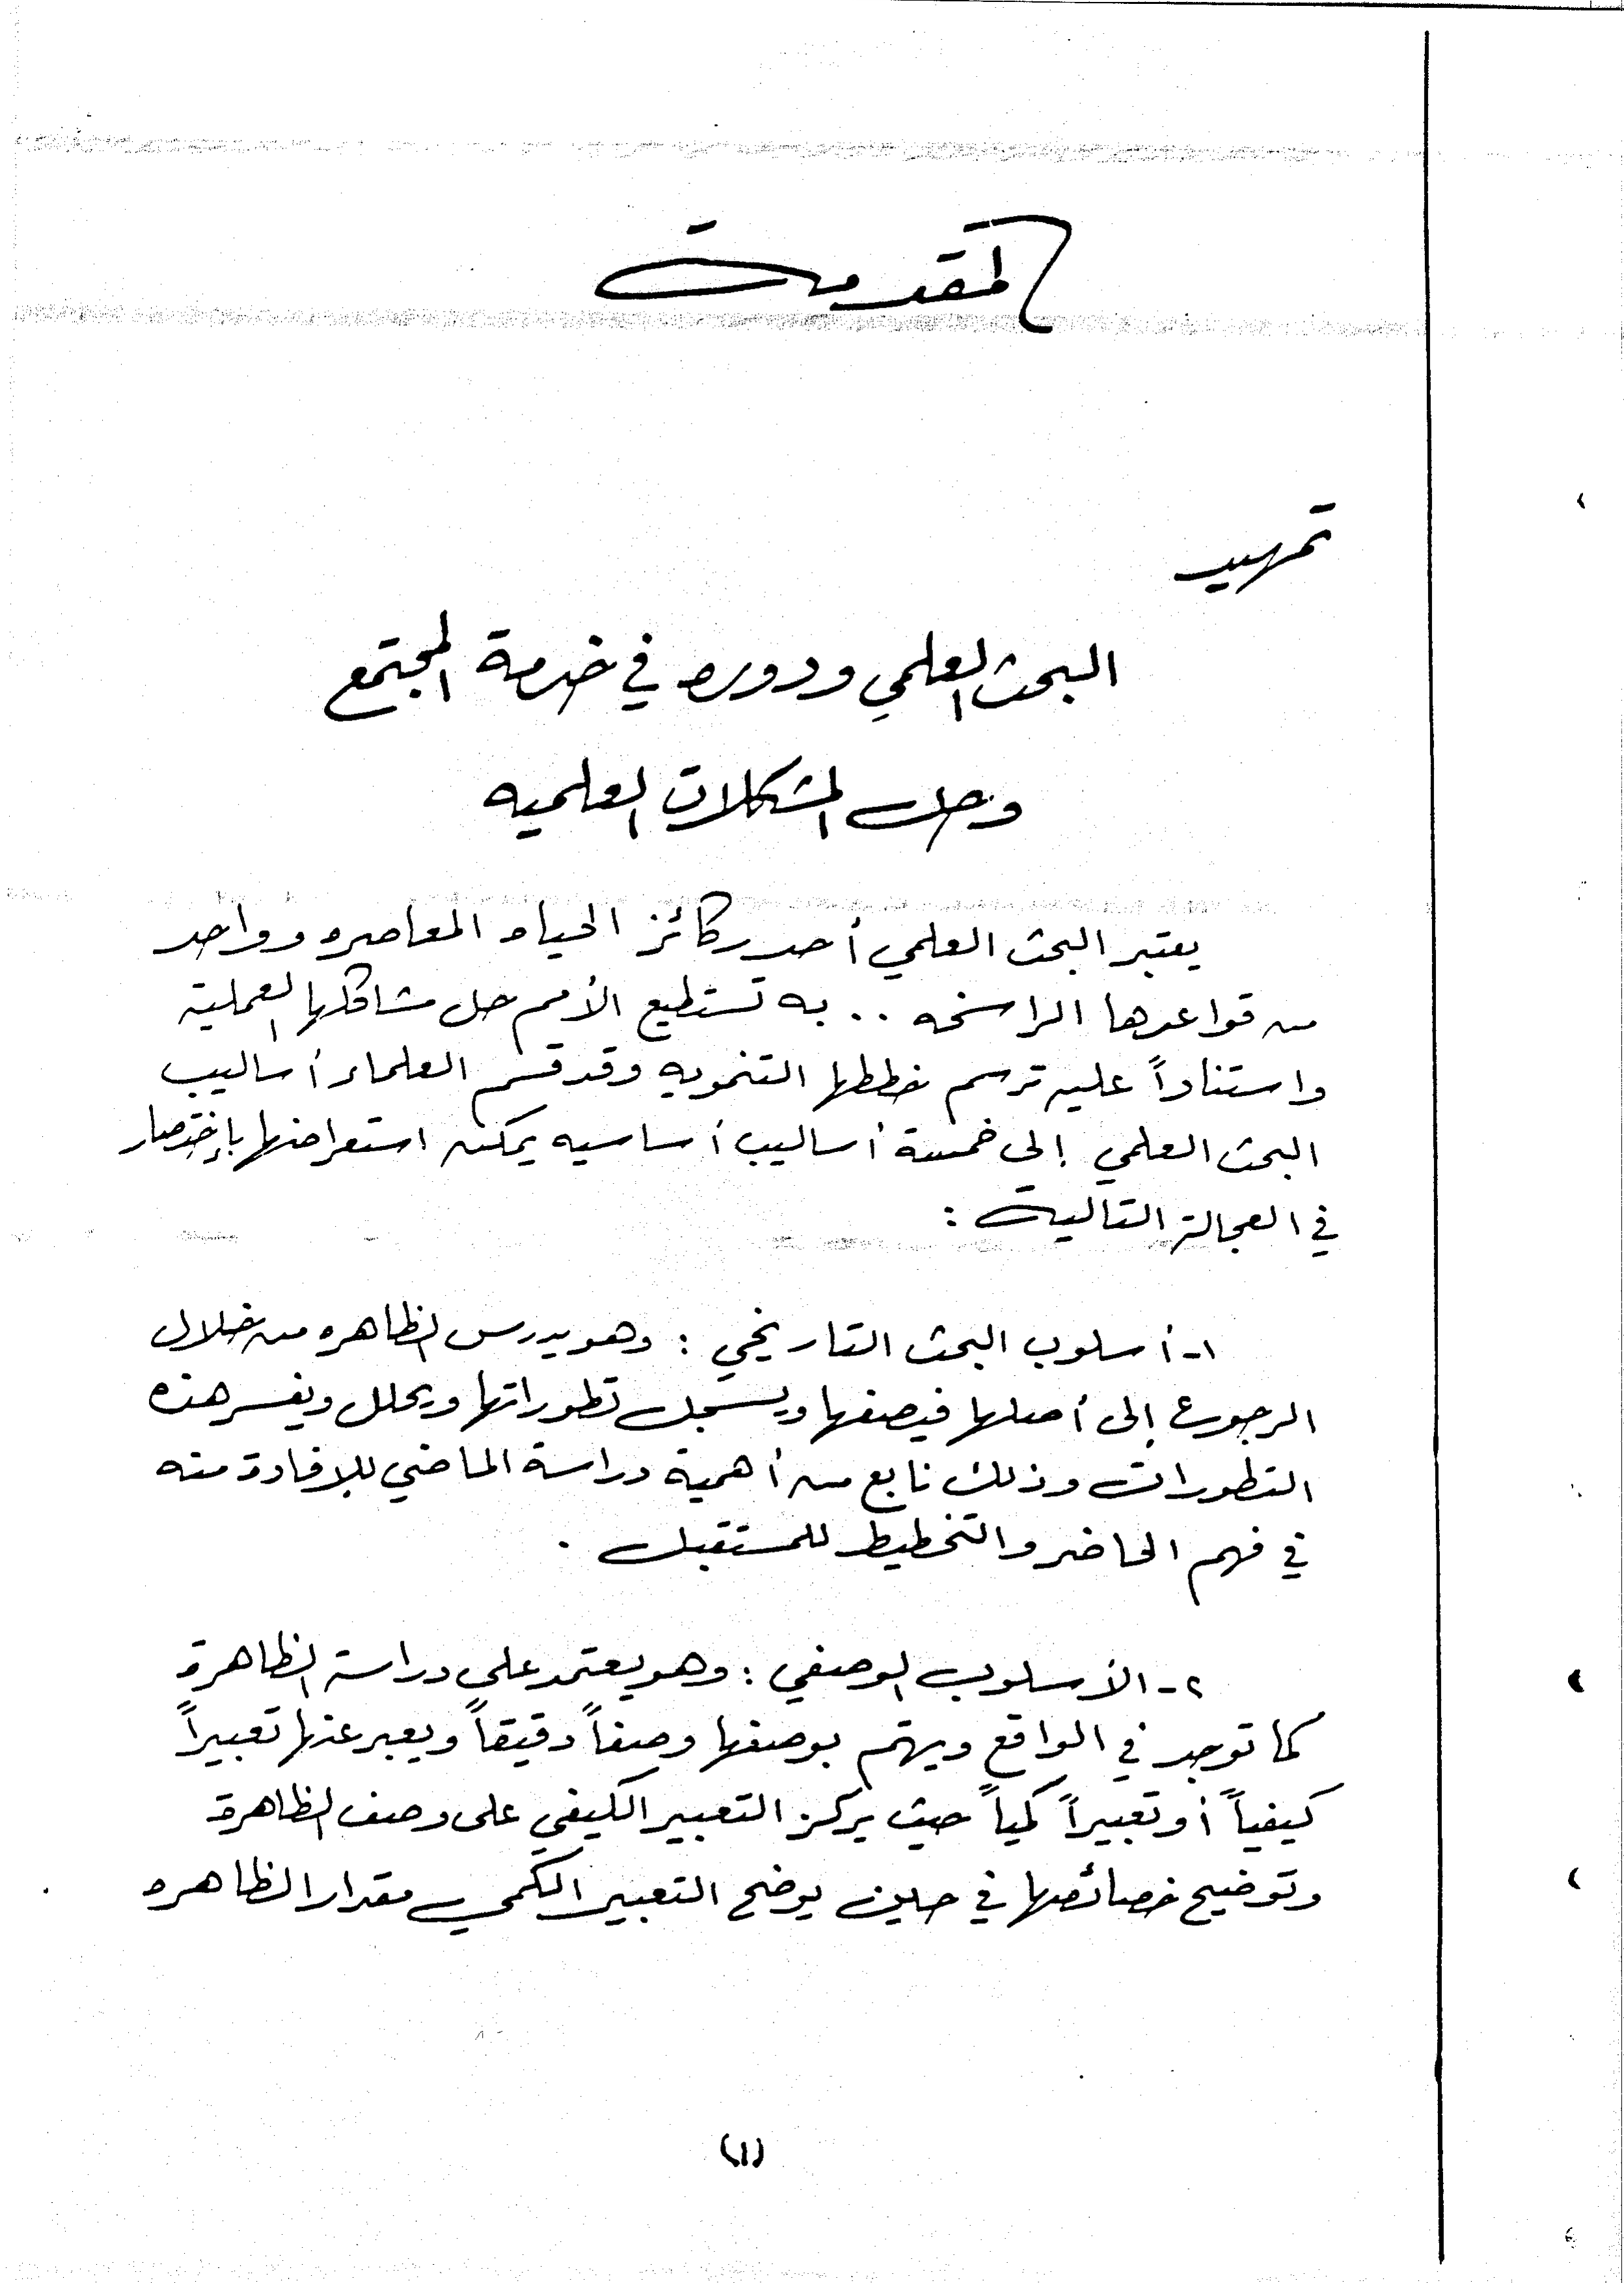 المقدمة
تمهيد
البحث العلمي ودوره في خدمة المجتمع
وحل المشكلات العلميه
يعتبر البحث العلمي أحد ركائز الحياه المعاصره وواحد
من قواعدها الراسخه .. به تستطيع الأمم حل مشاكلها العملية
واستناداً عليه ترسم خططها التنمويه وقد قسم العلماء أساليب
البحث العلمي إلى خمسة أساليب أساسيه يمكن استعراضها بإختصار
في العجالة التالية :
١- أسلوب البحث التاريخي : وهو يدرس الظاهره من خلال
الرجوع إلى أصلها فيصفها ويسجل تطوراتها ويحلل ويفسر هذه
التطورات وذلك نابع من أهمية دراسة الماضي للإفادة منه
في فهم الحاضر والتخطيط للمستقبل .
٢- الأسلوب الوصفي : وهو يعتمد على دراسة الظاهرة
كما توجد في الواقع ويهتم بوصفها وصفاً دقيقاً ويعبر عنها تعبيراً
كيفياً أو تعبيراً كمياً حيث يركز التعبير الكيفي على وصف الظاهرة
وتوضيح خصائصها في حين يوضح التعبير الكمي مقدار الظاهره
(١)